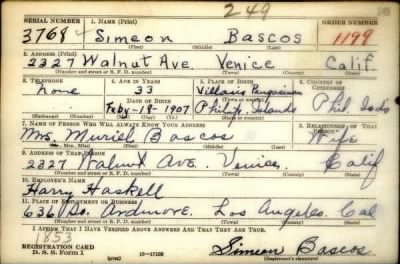 249
249
SERIAL NUMBER 1. NAME (Print) ORDER NUMBER
3768 Simeon Bascos 1199
(First) (Middle) (Last)
2. ADDRESS (Print)
2327 Walnut Ave. Venice Calif.
(Number and street or R. F. D. number) (Town) (County) (State)
3. TELEPHONE 4. AGE IN YEARS 5. PLACE OF BIRTH 6. COUNTRY OF CITIZENSHIP
none 33 Villasis
DATE OF BIRTH
Feby-18-1907 Islands Phil
(Mo.) (Day) (Yr.) (State or country)
7. NAME OF PERSON WHO WILL ALWAYS KNOW YOUR ADDRESS 8. RELATIONSHIP OF THAT PERSON
Mrs. Muriel Bascos Wife
(Mr., Mrs., Miss) (First) (Middle) (Last)
9. ADDRESS OF THAT PERSON
2327 Walnut Ave. Venice Calif
(Number and street or R. F. D. number) (Town) (County) (State)
10. EMPLOYER'S NAME
Harry Haskell
11. PLACE OF EMPLOYMENT OR BUSINESS
636 So. Ardmore. Los Angeles. Cal
(Number and street or R. F. D. number) (Town) (County) (State)
I AFFIRM THAT I HAVE VERIFIED ABOVE ANSWERS AND THAT THEY ARE TRUE.
1853
REGISTRATION CARD
D. S. S. Form 1 16-17105 Simeon Bascos
(over)